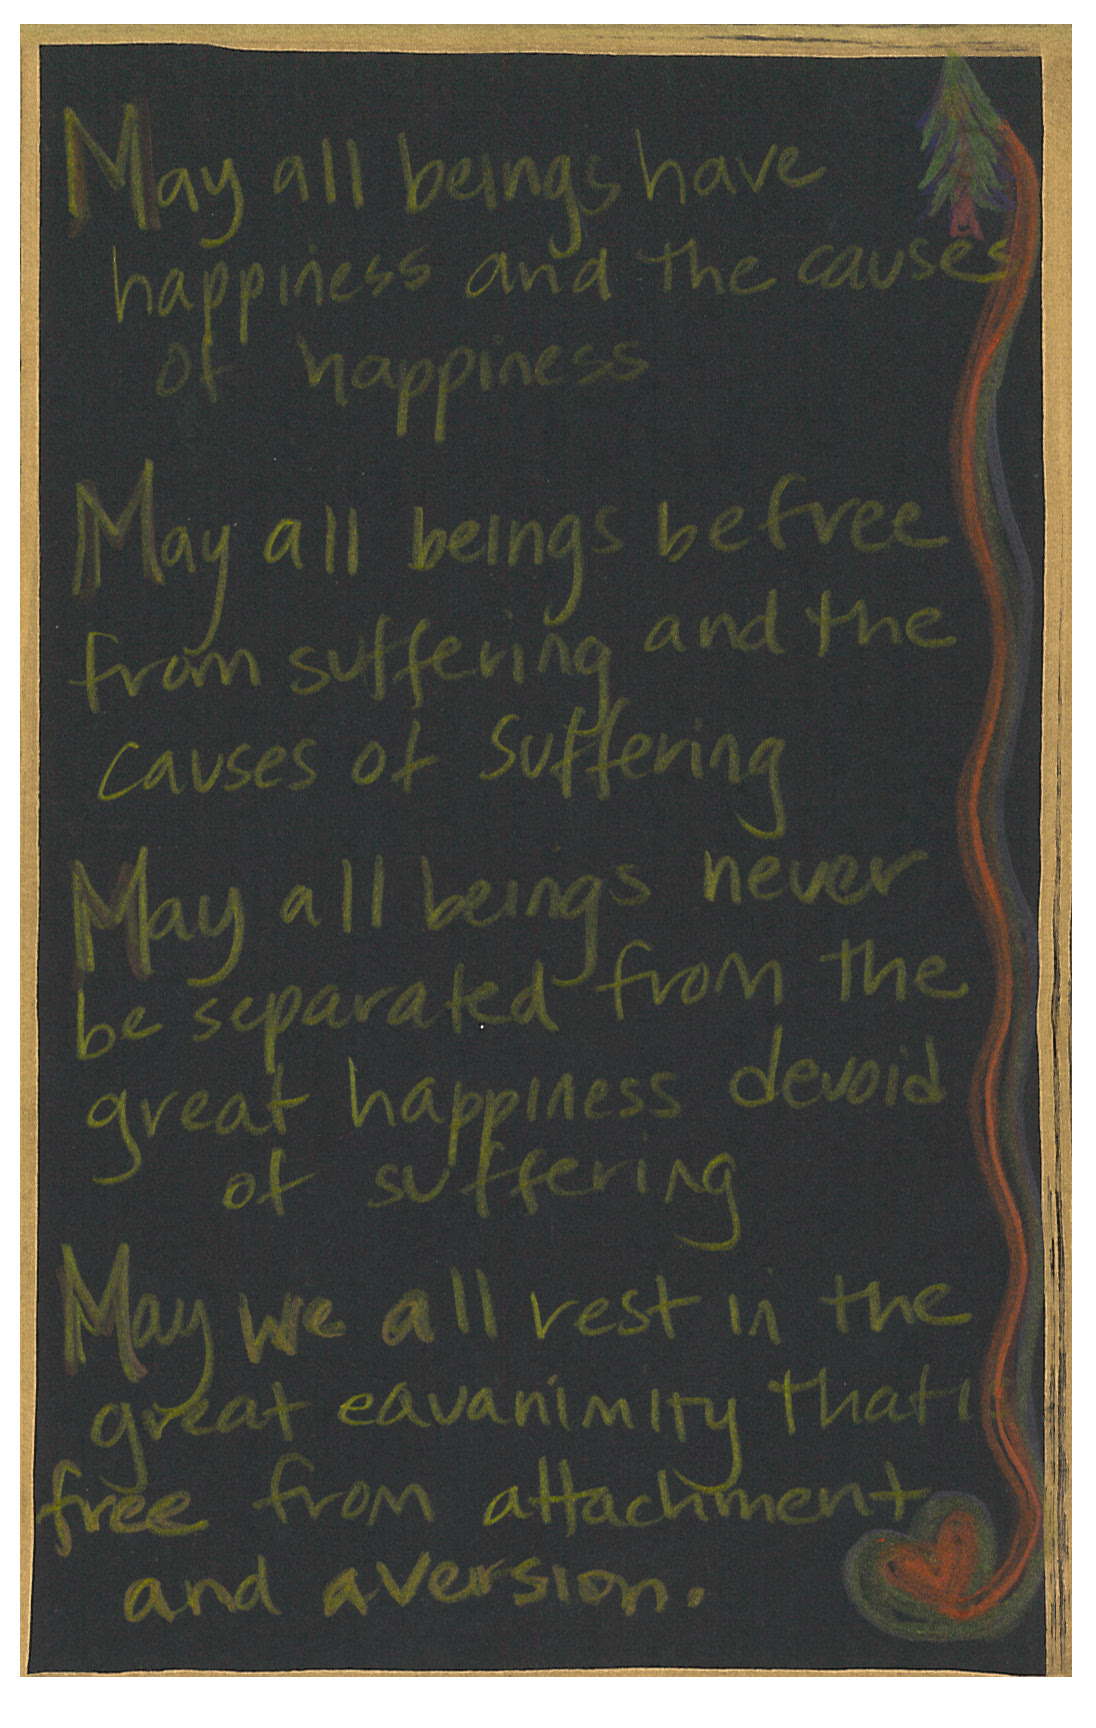 May all beings have
happiness and the causes
of happiness
May all beings be free
from suffering and the
causes of suffering
May all beings never
be separated from the
great happiness devoid
of suffering
May we all rest in the
great eavanimity that i
free from attachment
and aversion.